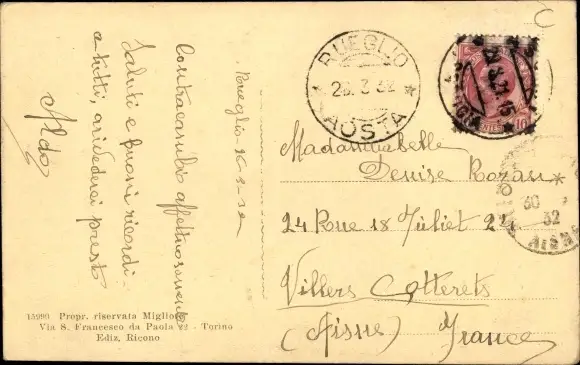 Rueglio 26-3-32
Contracambio affettuosamente
Saluti e buoni ricordi
a tutti, arivederci presto
Aldo
15999 Propr. riservata Miglio
Via S. Francesco da Paola 22 - Torino
Ediz. Ricono
RUEGLIO
26.3.32
AOSTA
Madamisabelle
Denise Rozan
24 Rue 18 Juliet 24
Villers Cotterets
(Aisne) France
30
32
AISNE
10